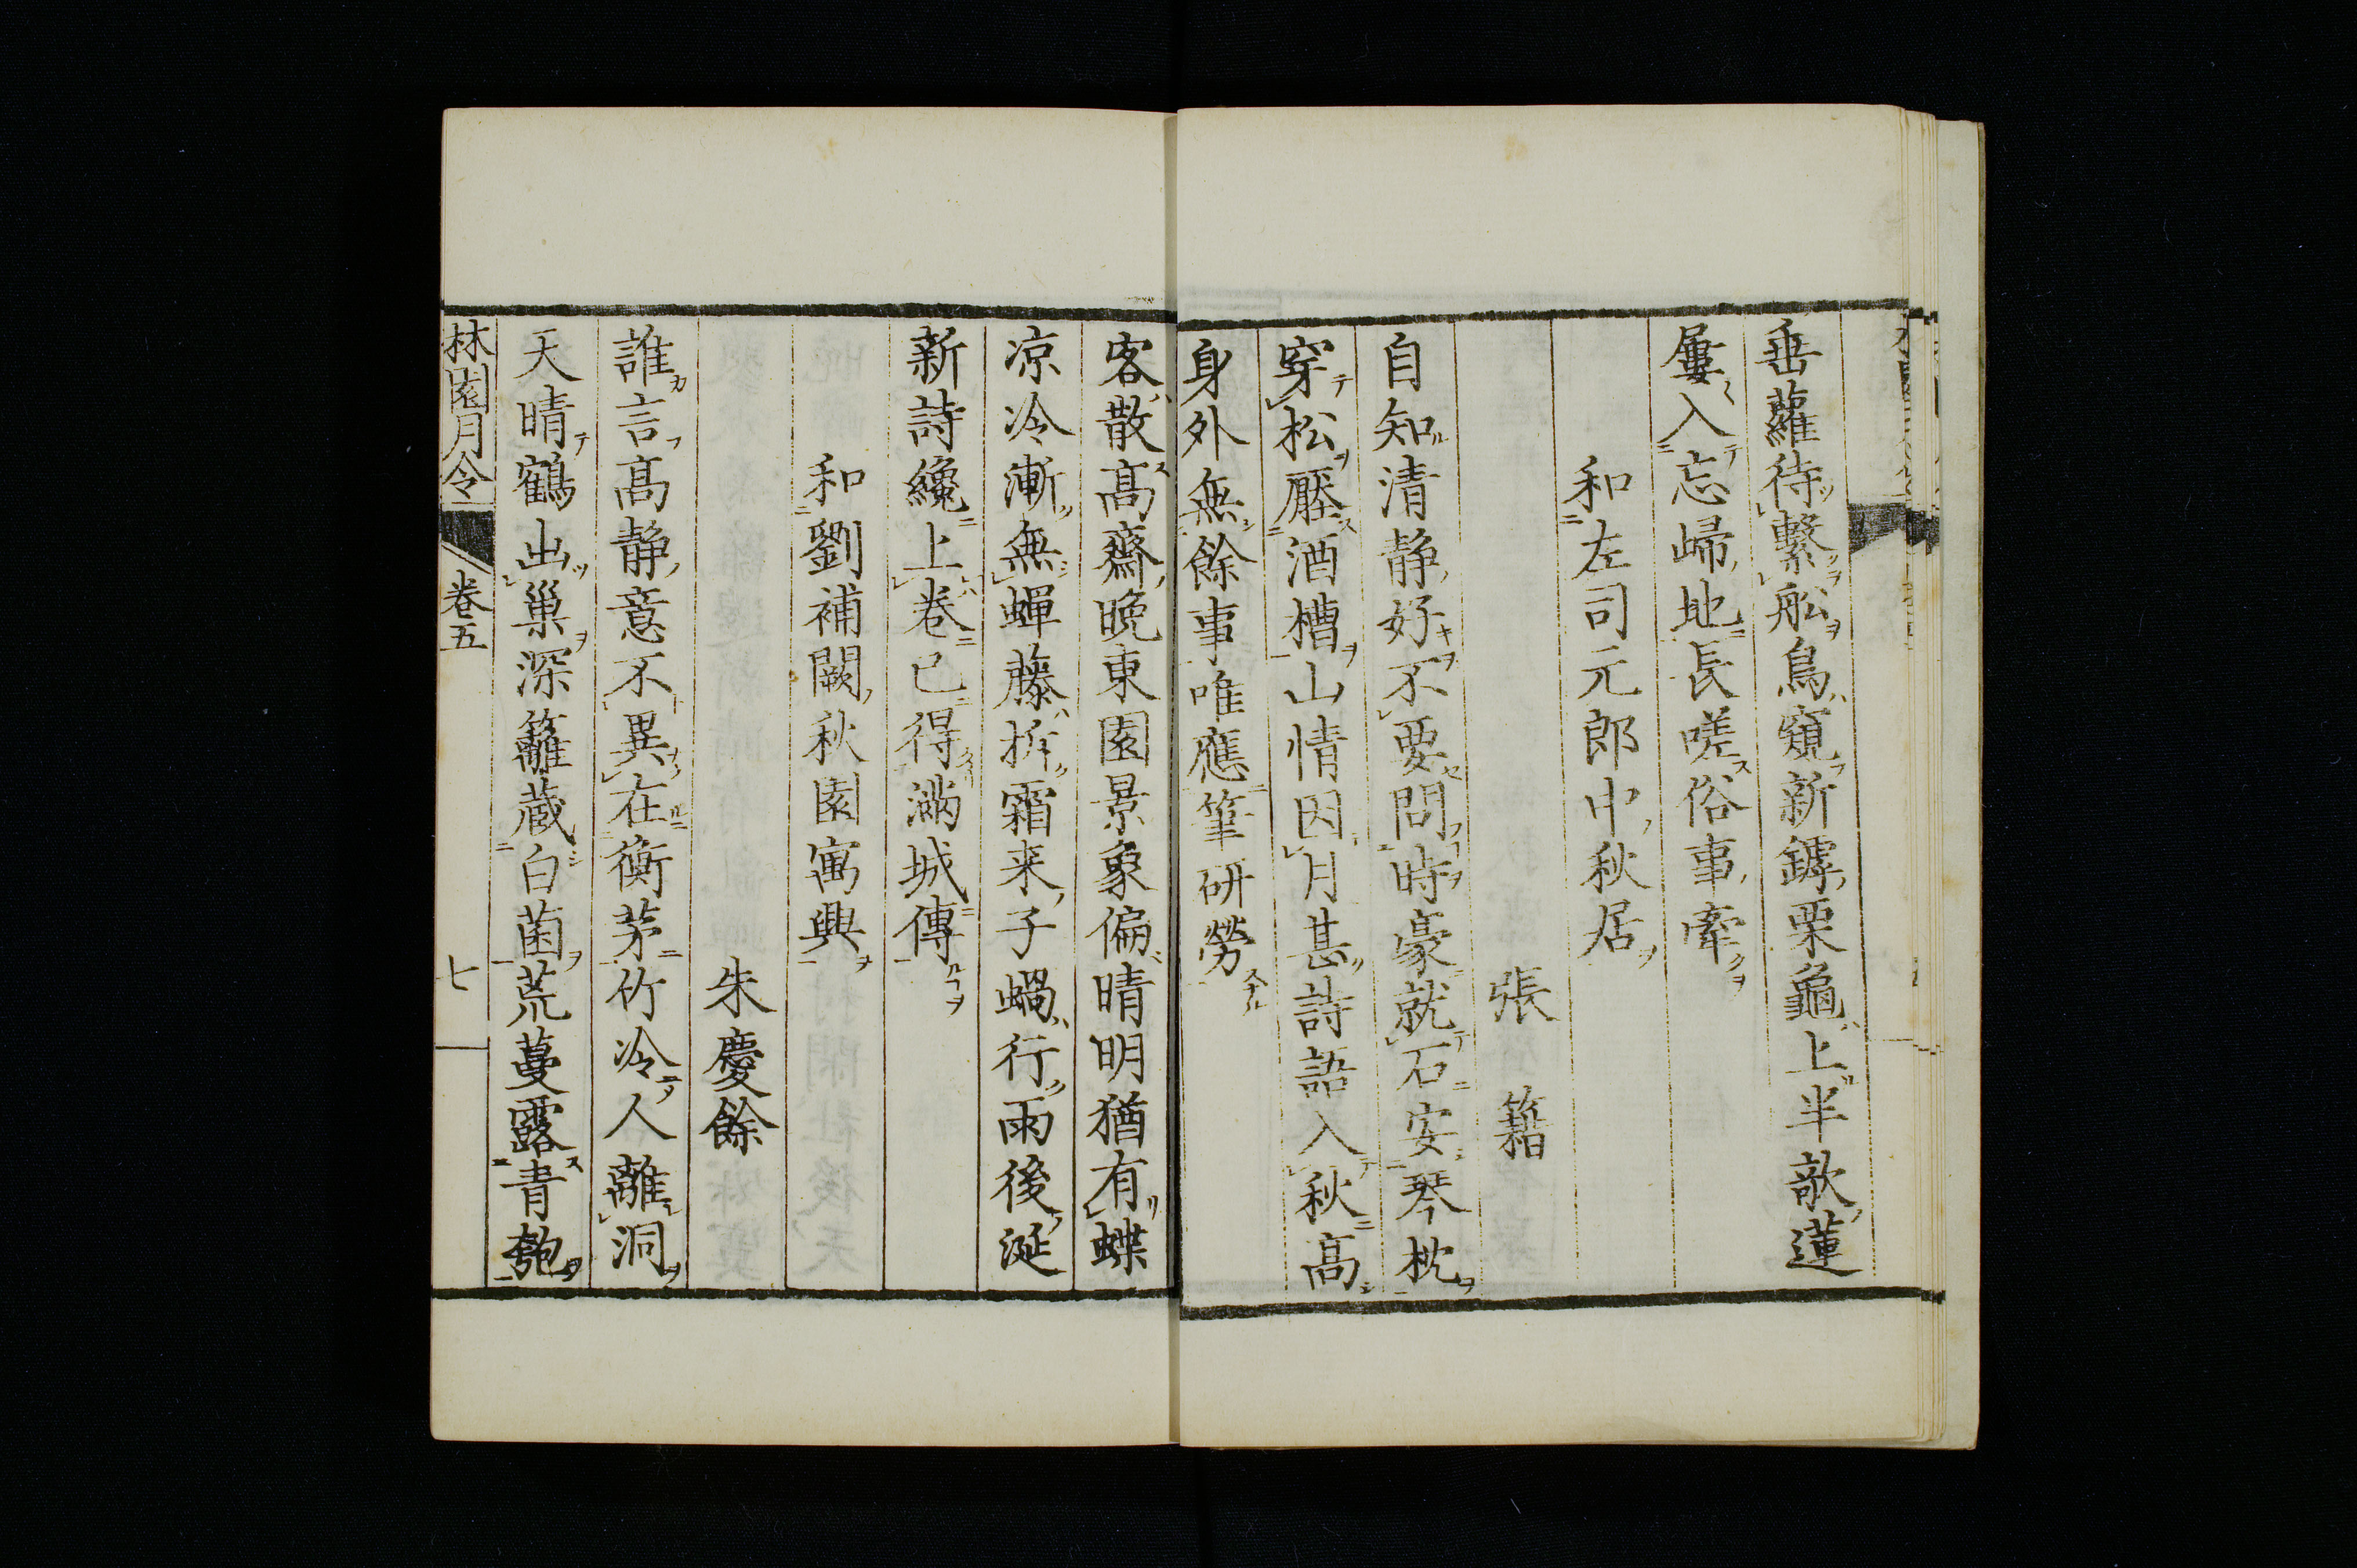 垂蘿待繫舩鳥窺新罅栗龜上半欹蓮
屢入忘歸地長嗟俗事牽
和左司元郎中秋居
張籍
自知清静好不要問時豪就石安琴枕
穿松壓酒槽山情因月甚詩語入秋高
身外無餘事唯應筆研勞
客散高齋晚東園景象偏晴明猶有蝶
凉冷漸無蟬藤折霜来子蝸行雨後涎
新詩纔上卷已得滿城傳
和劉補闕秋園寓興
朱慶餘
誰言高静意不異在衡茅竹冷人離洞
天晴鶴出巢深籬藏白菌荒蔓露青匏
林園月令
卷五
七